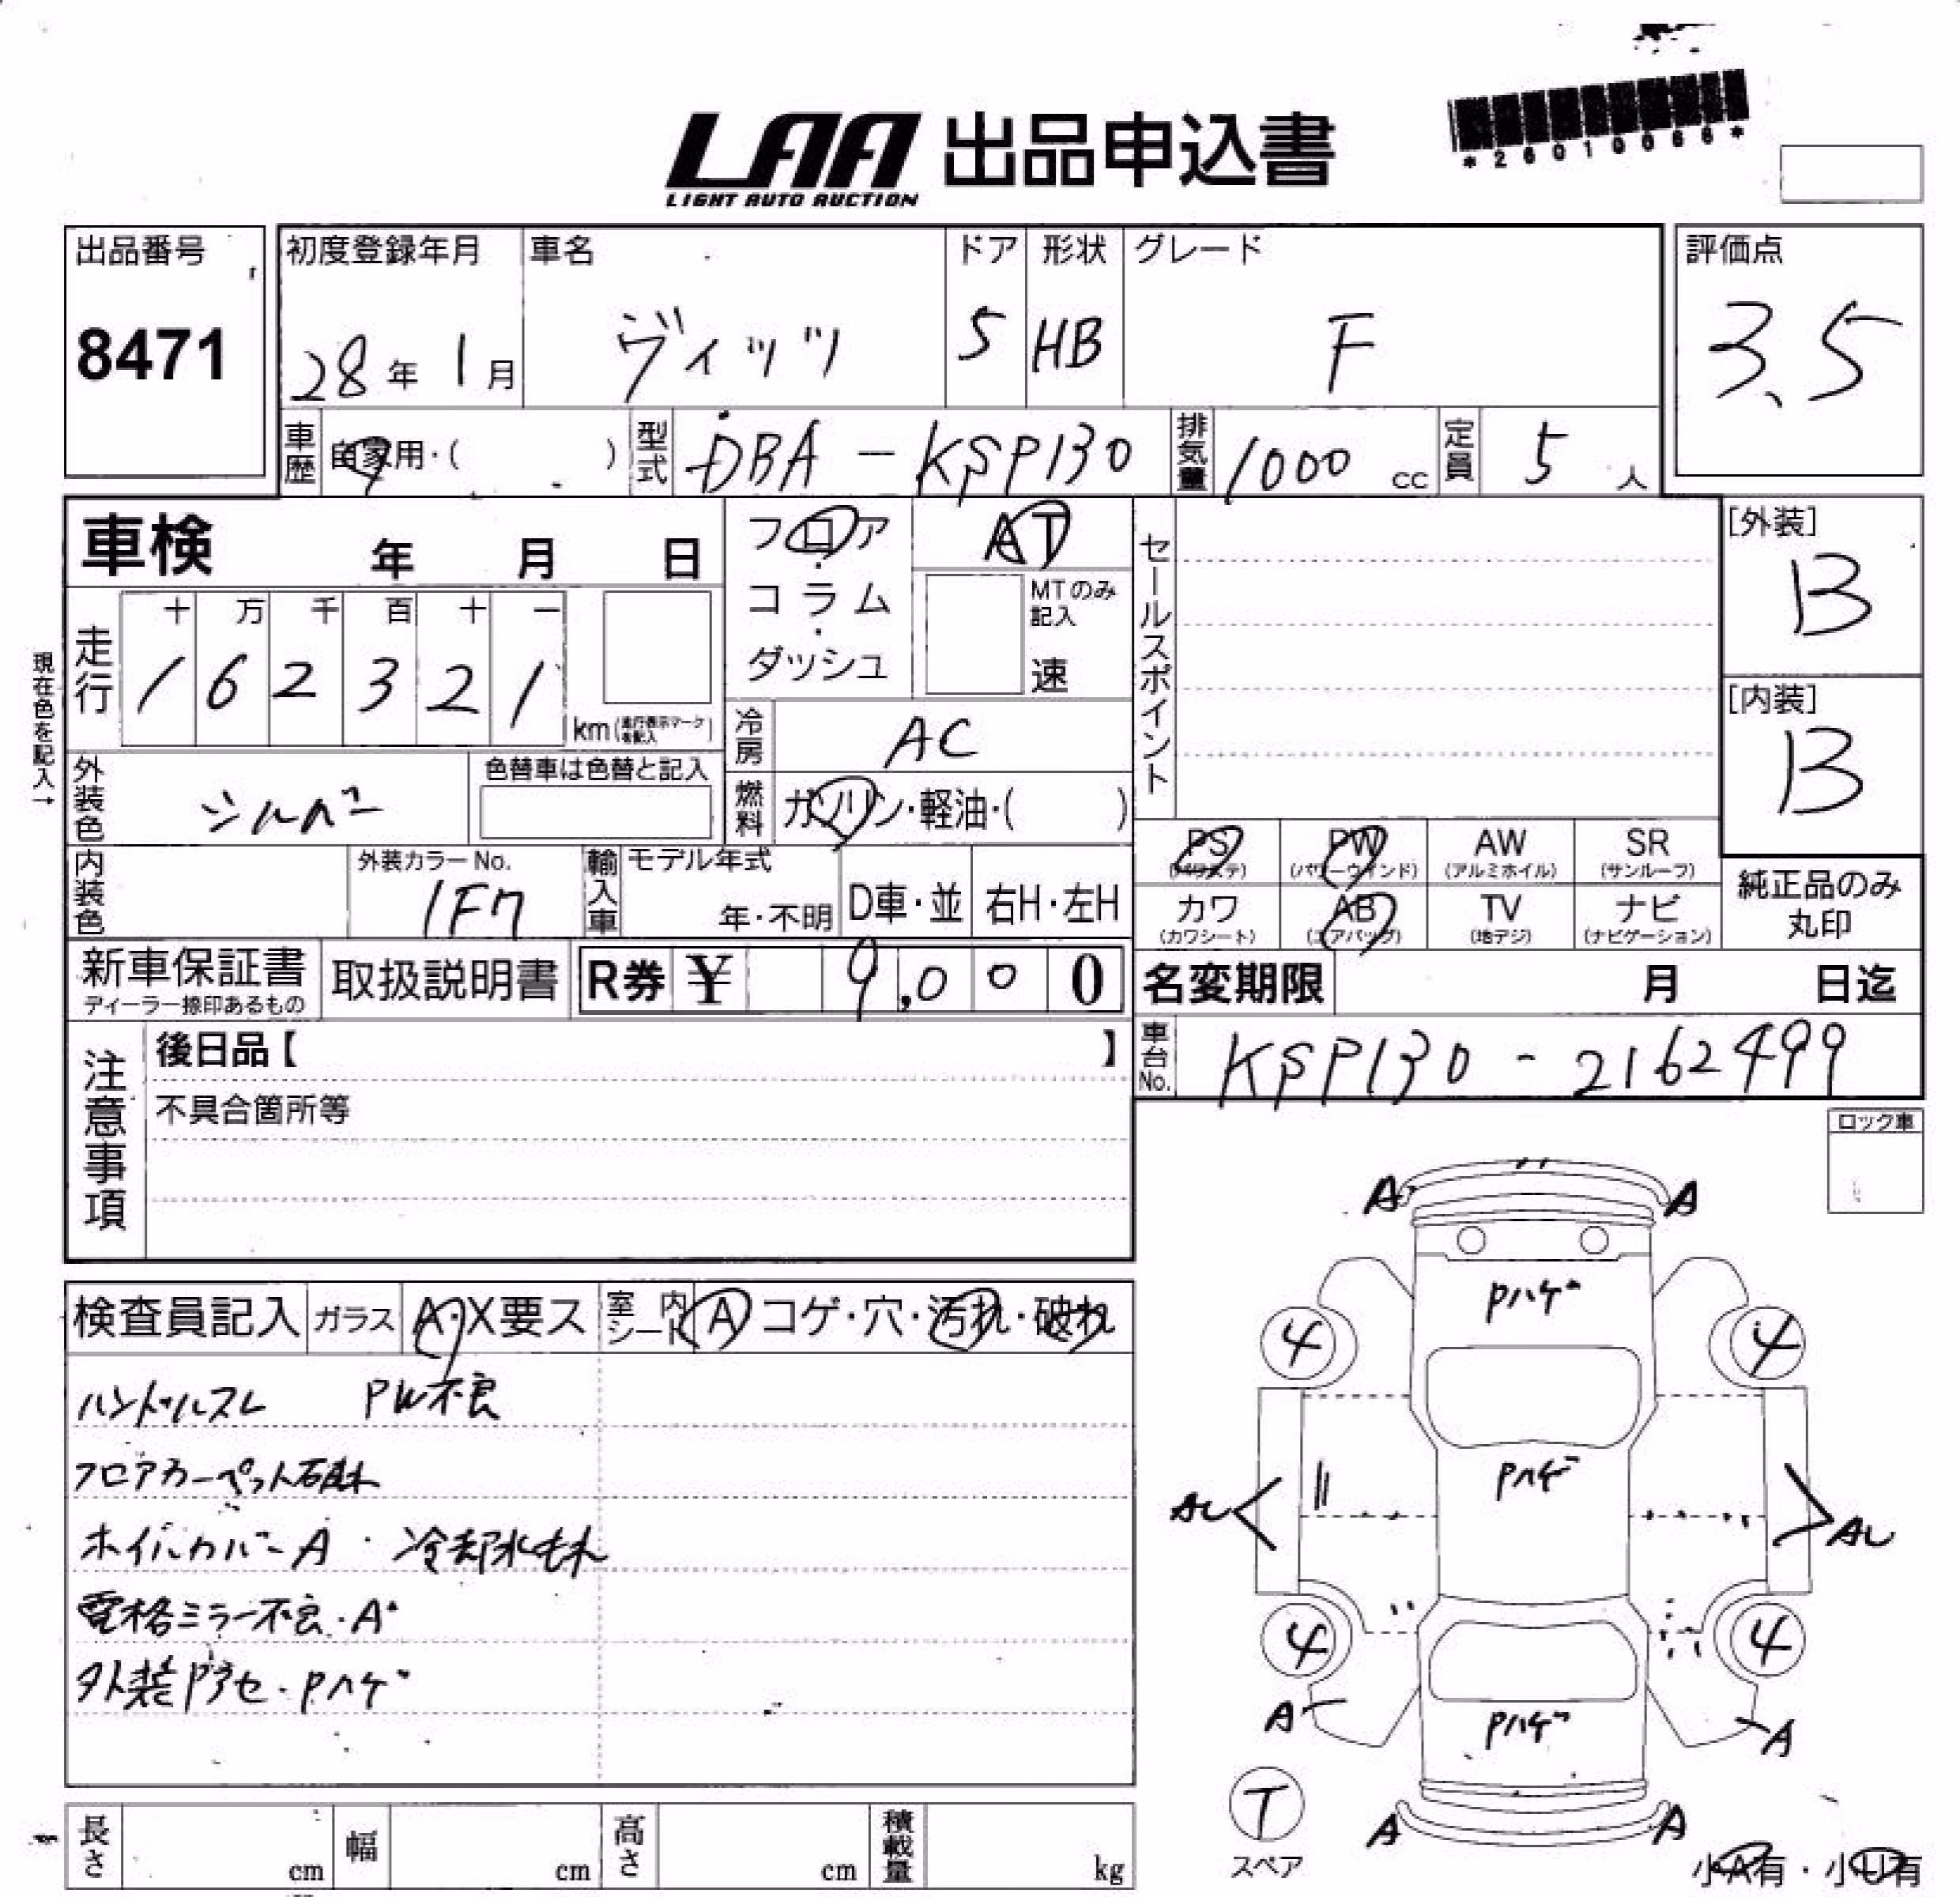 *26010066*
LAA 出品申込書
LIGHT AUTO AUCTION
出品番号 初度登録年月 車名 ドア 形状 グレード 評価点
8471 28年 1月 ヴィッツ 5 HB F 3.5
車歴 自家用・( ) 型式 DBA-KSP130 排気量 1000 cc 定員 5 人
車検 年 月 日 フロア・コラム・ダッシュ AT セールスポイント [外装]
B
MTのみ記入
速
現在色を記入→
走行 十 万 千 百 十 一
1 6 2 3 2 1 km (走行表示マーク を記入)
[内装]
B
冷房 AC
外装色 シルバー 色替車は色替と記入 燃料 ガソリン・軽油・( )
PS (パワステ) PW (パワーウインド) AW (アルミホイル) SR (サンルーフ)
内装色 外装カラーNo. 1F7 輸入車 モデル年式 年・不明 D車・並 右H・左H
カワ (カワシート) AB (エアバッグ) TV (地デジ) ナビ (ナビゲーション) 純正品のみ丸印
新車保証書 ディーラー捺印あるもの 取扱説明書 R券 ¥ 9,000 名変期限 月 日迄
注意事項 後日品【 】 車台No. KSP130-2162499
不具合箇所等
ロック車
A A
検査員記入 ガラス A・X要ス 室内シート A コゲ・穴・汚れ・破れ
Pハゲ
4 4
ハンドルスレ PW不良
フロアカーペット破れ
Pハゲ
AU AU
ホイルカバーA・冷却水もれ
電格ミラー不良・A
4 4
外装色アセ・Pハゲ
A A
Pハゲ
T
スペア
A A
長さ cm 幅 cm 高さ cm 積載量 kg
小A有・小U有